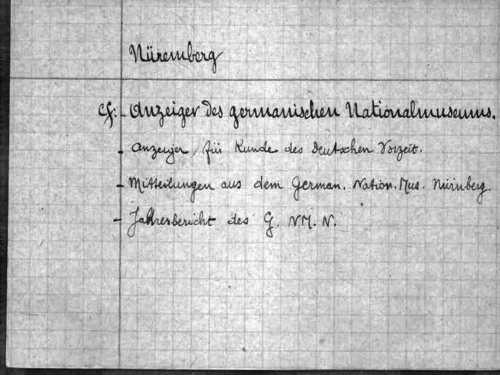 Nüremberg
cf: - Anzeiger des germanischen Nationalmuseums.
- Anzeiger für Kunde des Deutschen Vorzeit.
- Mitteilungen aus dem German. Nation. Mus. Nürnberg
- Jahresbericht des G. NM. N.